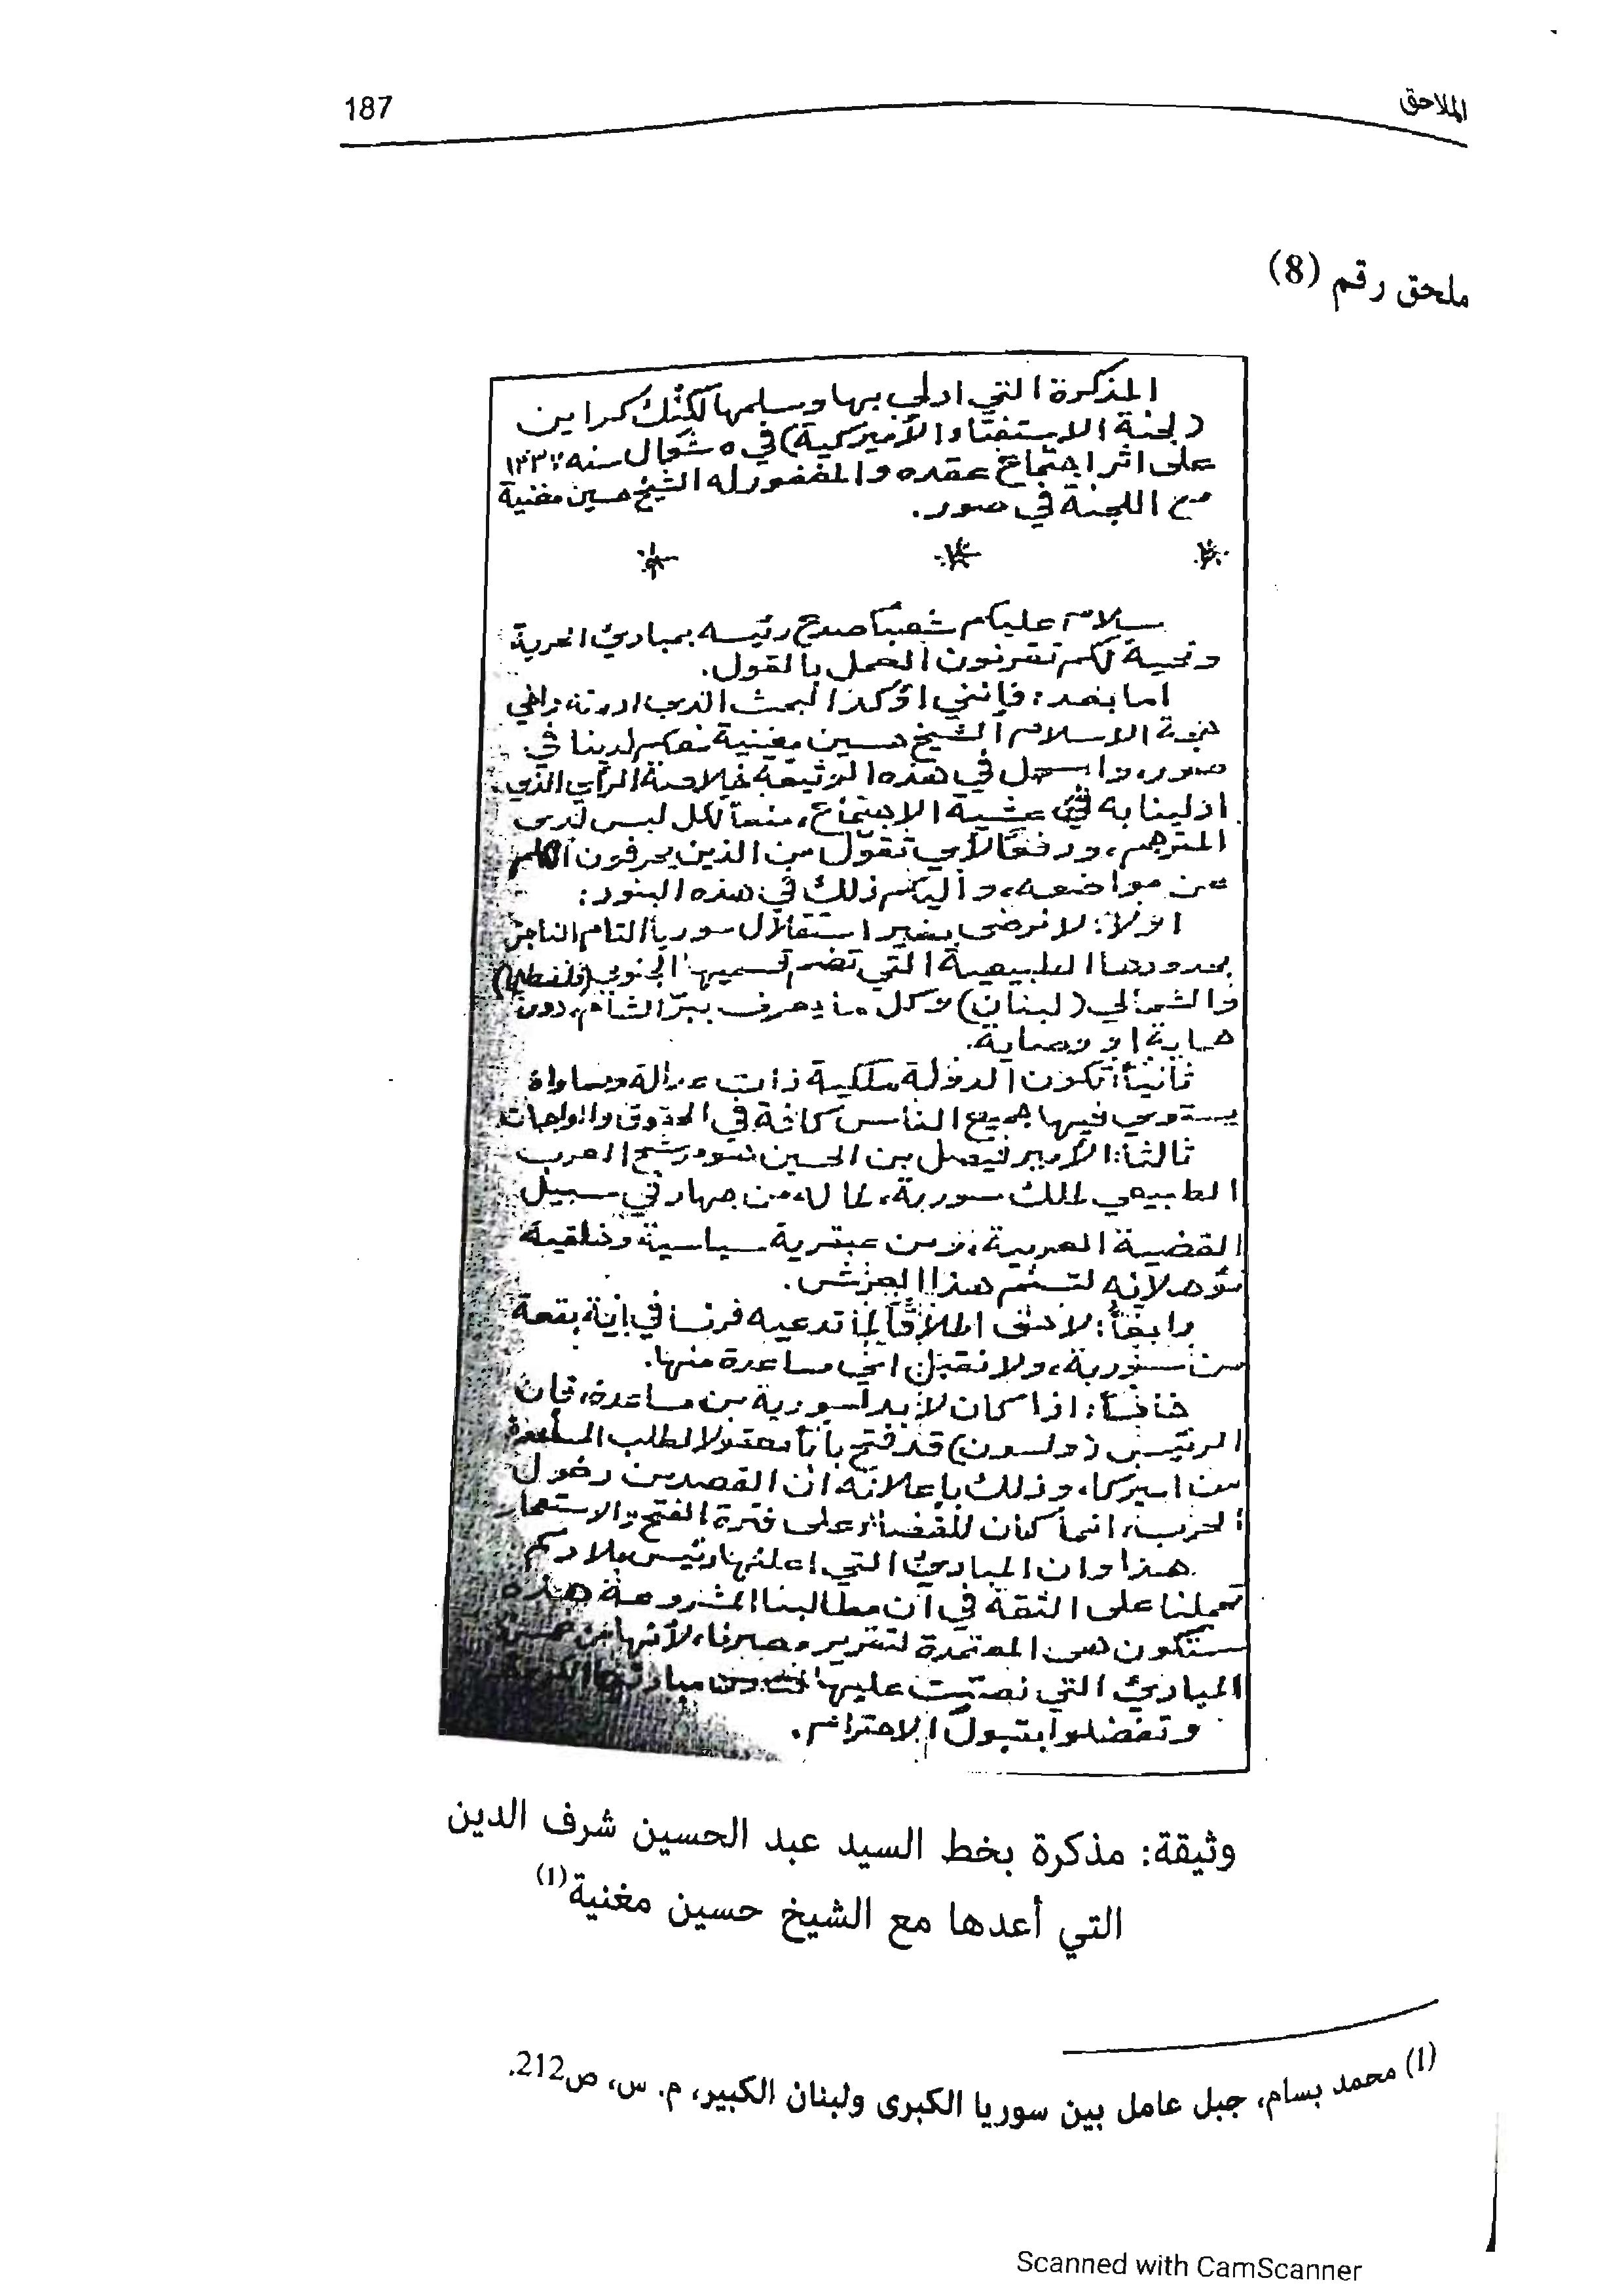 الملاحق
187
ملحق رقم (8)
المذكرة التي ادلى بها وسلمها لكنك كراين
(لجنة الاستفتاء الأميركية) في ٥ شوال سنه ١٣٣٧
على اثر اجتماع عقده والمغفور له الشيخ حسين مغنية
مع اللجنة في صور.
سلام عليكم شعباً صدح رئيسه بمبادئ الحرية
وتحية لكم تقرنون العمل بالقول.
اما بعد: فإنني اؤكد البحث الذي ادرته واخي
حجة الاسلام الشيخ حسين مغنية معكم لدينا في
صور، واسجل في هذه الوثيقة خلاصة الرأي الذي
ادلينا به في عشية الاجتماع، منعاً لكل لبس لدى
المترجم، ودفعاً لأي تقوّل من الذين يحرفون الكلم
عن مواضعه، وأليكم ذلك في هذه البنود:
اولاً: لا نرضى بغير استقلال سوريا التام الناجز
بحدودها الطبيعية التي تضم قسميها الجنوبي (فلسطين)
والشمالي (لبنان) وكل ما يعرف ببرّ الشام، دون
حماية او وصاية.
ثانياً: تكون الدولة ملكية ذات عدالة ومساواة
يستوي فيها جميع الناس كافة في الحقوق والواجبات
ثالثاً: الأمير فيصل بن الحسين هو مرشح العرب
الطبيعي لملك سورية، لما له من جهاد في سبيل
القضية العربية، ومن عبقرية سياسية وخلقية
تؤهلانه لتسنّم هذا العرش.
رابعاً: لا حق اطلاقاً لما تدعيه فرنسا في أية بقعة
من سورية، ولا نقبل اي مساعدة منها.
خامساً: اذا كان لا بد لسورية من مساعدة، فان
الرئيس (ولسون) قد فتح باباً معقولا لطلب المساعدة
من اميركا، وذلك بإعلانه ان القصد من دخول
الحرب، انما كان للقضاء على فكرة الفتح والاستعمار
هذا وان المبادئ التي اعلنها رئيس بلادكم
تحملنا على الثقة في أن مطالبنا المشروعة هذه
ستكون هي المعتمدة لتقرير مصيرنا، لأنها من
المبادئ التي نصت عليها
وتفضلوا بقبول الاحترام.
وثيقة: مذكرة بخط السيد عبد الحسين شرف الدين
التي أعدها مع الشيخ حسين مغنية(1)
(1) محمد بسام، جبل عامل بين سوريا الكبرى ولبنان الكبير، م. س، ص212.
Scanned with CamScanner